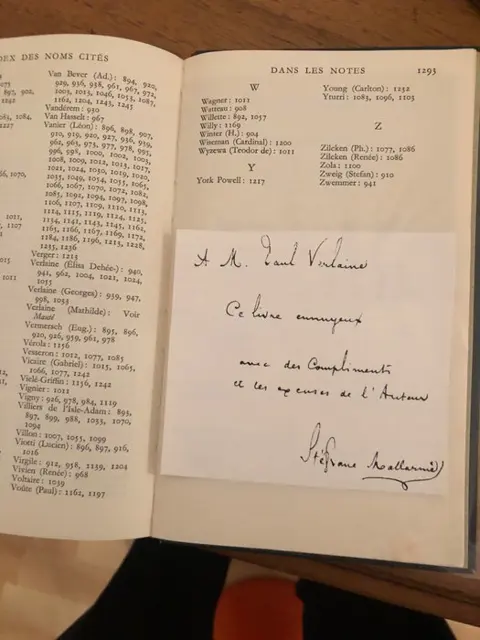 DEX DES NOMS CITÉS
Van Bever (Ad.) : 894, 920,
929, 936, 958, 961, 967, 972,
1003, 1013, 1046, 1053, 1087,
1162, 1204, 1243, 1245
Vandérem : 930
Van Hasselt : 967
Vanier (Léon) : 896, 898, 907,
910, 919, 920, 927, 936, 939,
962, 963, 975, 977, 978, 991,
996, 998, 1000, 1002, 1003,
1008, 1009, 1012, 1015, 1017,
1021, 1024, 1030, 1019, 1020,
1035, 1049, 1054, 1055, 1065,
1066, 1067, 1070, 1072, 1081,
1085, 1092, 1094, 1097, 1098,
1106, 1107, 1109, 1110, 1113,
1114, 1115, 1119, 1124, 1125,
1134, 1141, 1143, 1145, 1162,
1165, 1166, 1167, 1169, 1172,
1184, 1186, 1196, 1215, 1228,
1235, 1236
Verger : 1215
Verlaine (Élisa Dehée-) : 940,
941, 962, 1004, 1021, 1024,
1055
Verlaine (Georges) : 939, 947,
998, 1053
Verlaine (Mathilde) : Voir
Mauté
Vermersch (Eug.) : 895, 896,
920, 926, 959, 961, 978
Vérola : 1156
Vesseron : 1012, 1077, 1085
Vicaire (Gabriel) : 1015, 1065,
1066, 1077, 1242
Vielé-Griffin : 1156, 1242
Vignier : 1011
Vigny : 926, 978, 984, 1119
Villiers de l'Isle-Adam : 895,
897, 899, 988, 1033, 1070,
1094
Villon : 1007, 1055, 1099
Viotti (Lucien) : 896, 897, 916,
1016
Virgile : 912, 958, 1139, 1204
Vivien (Renée) : 968
Voltaire : 1039
Voûte (Paul) : 1162, 1197
DANS LES NOTES 1293
W
Wagner : 1011
Watteau : 908
Willette : 892, 1057
Willy : 1169
Winter (H.) : 904
Wiseman (Cardinal) : 1200
Wyzewa (Teodor de) : 1011
Y
York Powell : 1217
Young (Carlton) : 1232
Yturri : 1083, 1096, 1103
Z
Zilcken (Ph.) : 1077, 1086
Zilcken (Renée) : 1086
Zola : 1100
Zweig (Stefan) : 910
Zwemmer : 941
A M. Paul Verlaine
Ce livre ennuyeux
avec des Compliments
et les excuses de l'Auteur
Stéfane Mallarmé